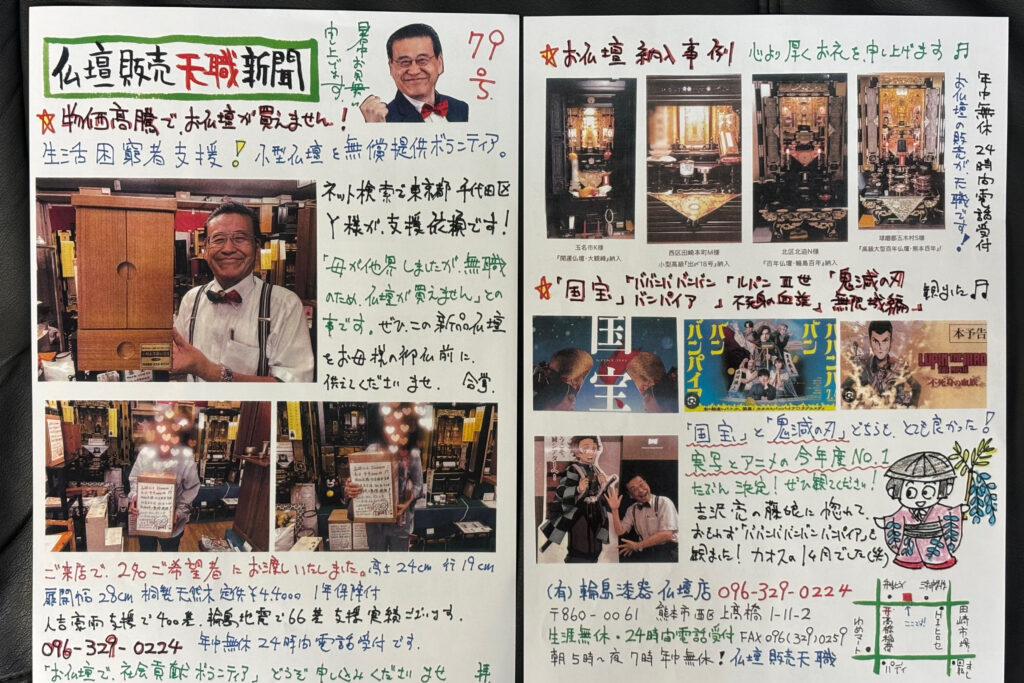 仏壇販売天職新聞
暑中お見舞い
申し上げます。
790
S.
☆物価高騰で、お仏壇が買えません!
生活困窮者支援!小型仏壇を無償提供ボランティア。
ネット検索で東京都千代田区
Y様が、支援依頼です!
「母が他界しましたが、無職
のため、仏壇が買えません」との
事です。ぜひ、この新品仏壇
をお母様の御仏前に、
供えてくださいませ。合掌
ご来店で、2名ご希望者にお渡しいたしました。高さ24cm 行19cm
扉開幅28cm 桐製天然木 定価¥44000 1年保障付
人吉豪雨支援で400基、輪島地震で66基支援実績ございます。
096-329-0224 年中無休24時間電話受付です。
「お仏壇で、社会貢献ボランティア」どうぞ申しくみくださいませ 拝
☆お仏壇納入事例 心より厚くお礼を申し上げます♫
年中無休24時間電話受付
お仏壇の販売が、天職です!
玉名市K様
『開運仏壇・大観峰』納入
西区田崎本町M様
小型高級『出〆18号』納入
北区北迫N様
『百年仏壇・輪島百年』納入
球磨郡五木村S様
『高級大型百年仏壇・熊本百年』
☆「国宝」「ババンババンバン バンパイア」「ルパン三世 不死身の血族」「鬼滅の刃 無限城編」観ました♫
国宝
ババンババンバンバンパイア
本予告
LUPIN THE IIIRD
不死身の血族
「国宝」と「鬼滅の刃」どちらも、とても良かった!
実写とアニメの今年度No.1
たぶん決定!ぜひ観てください!
吉沢亮の藤娘に惚れて、
おもわず「ババンババンバンバンパイア」も
観ました!カオスの14月でした(笑)
(有)輪島漆器仏壇店 096-329-0224
〒860-0061 熊本市西区上高橋1-11-2
生涯無休・24時間電話受付 FAX096(329)0259
朝5時〜夜7時 年中無休!仏壇販売天職
ここです!
田崎市場